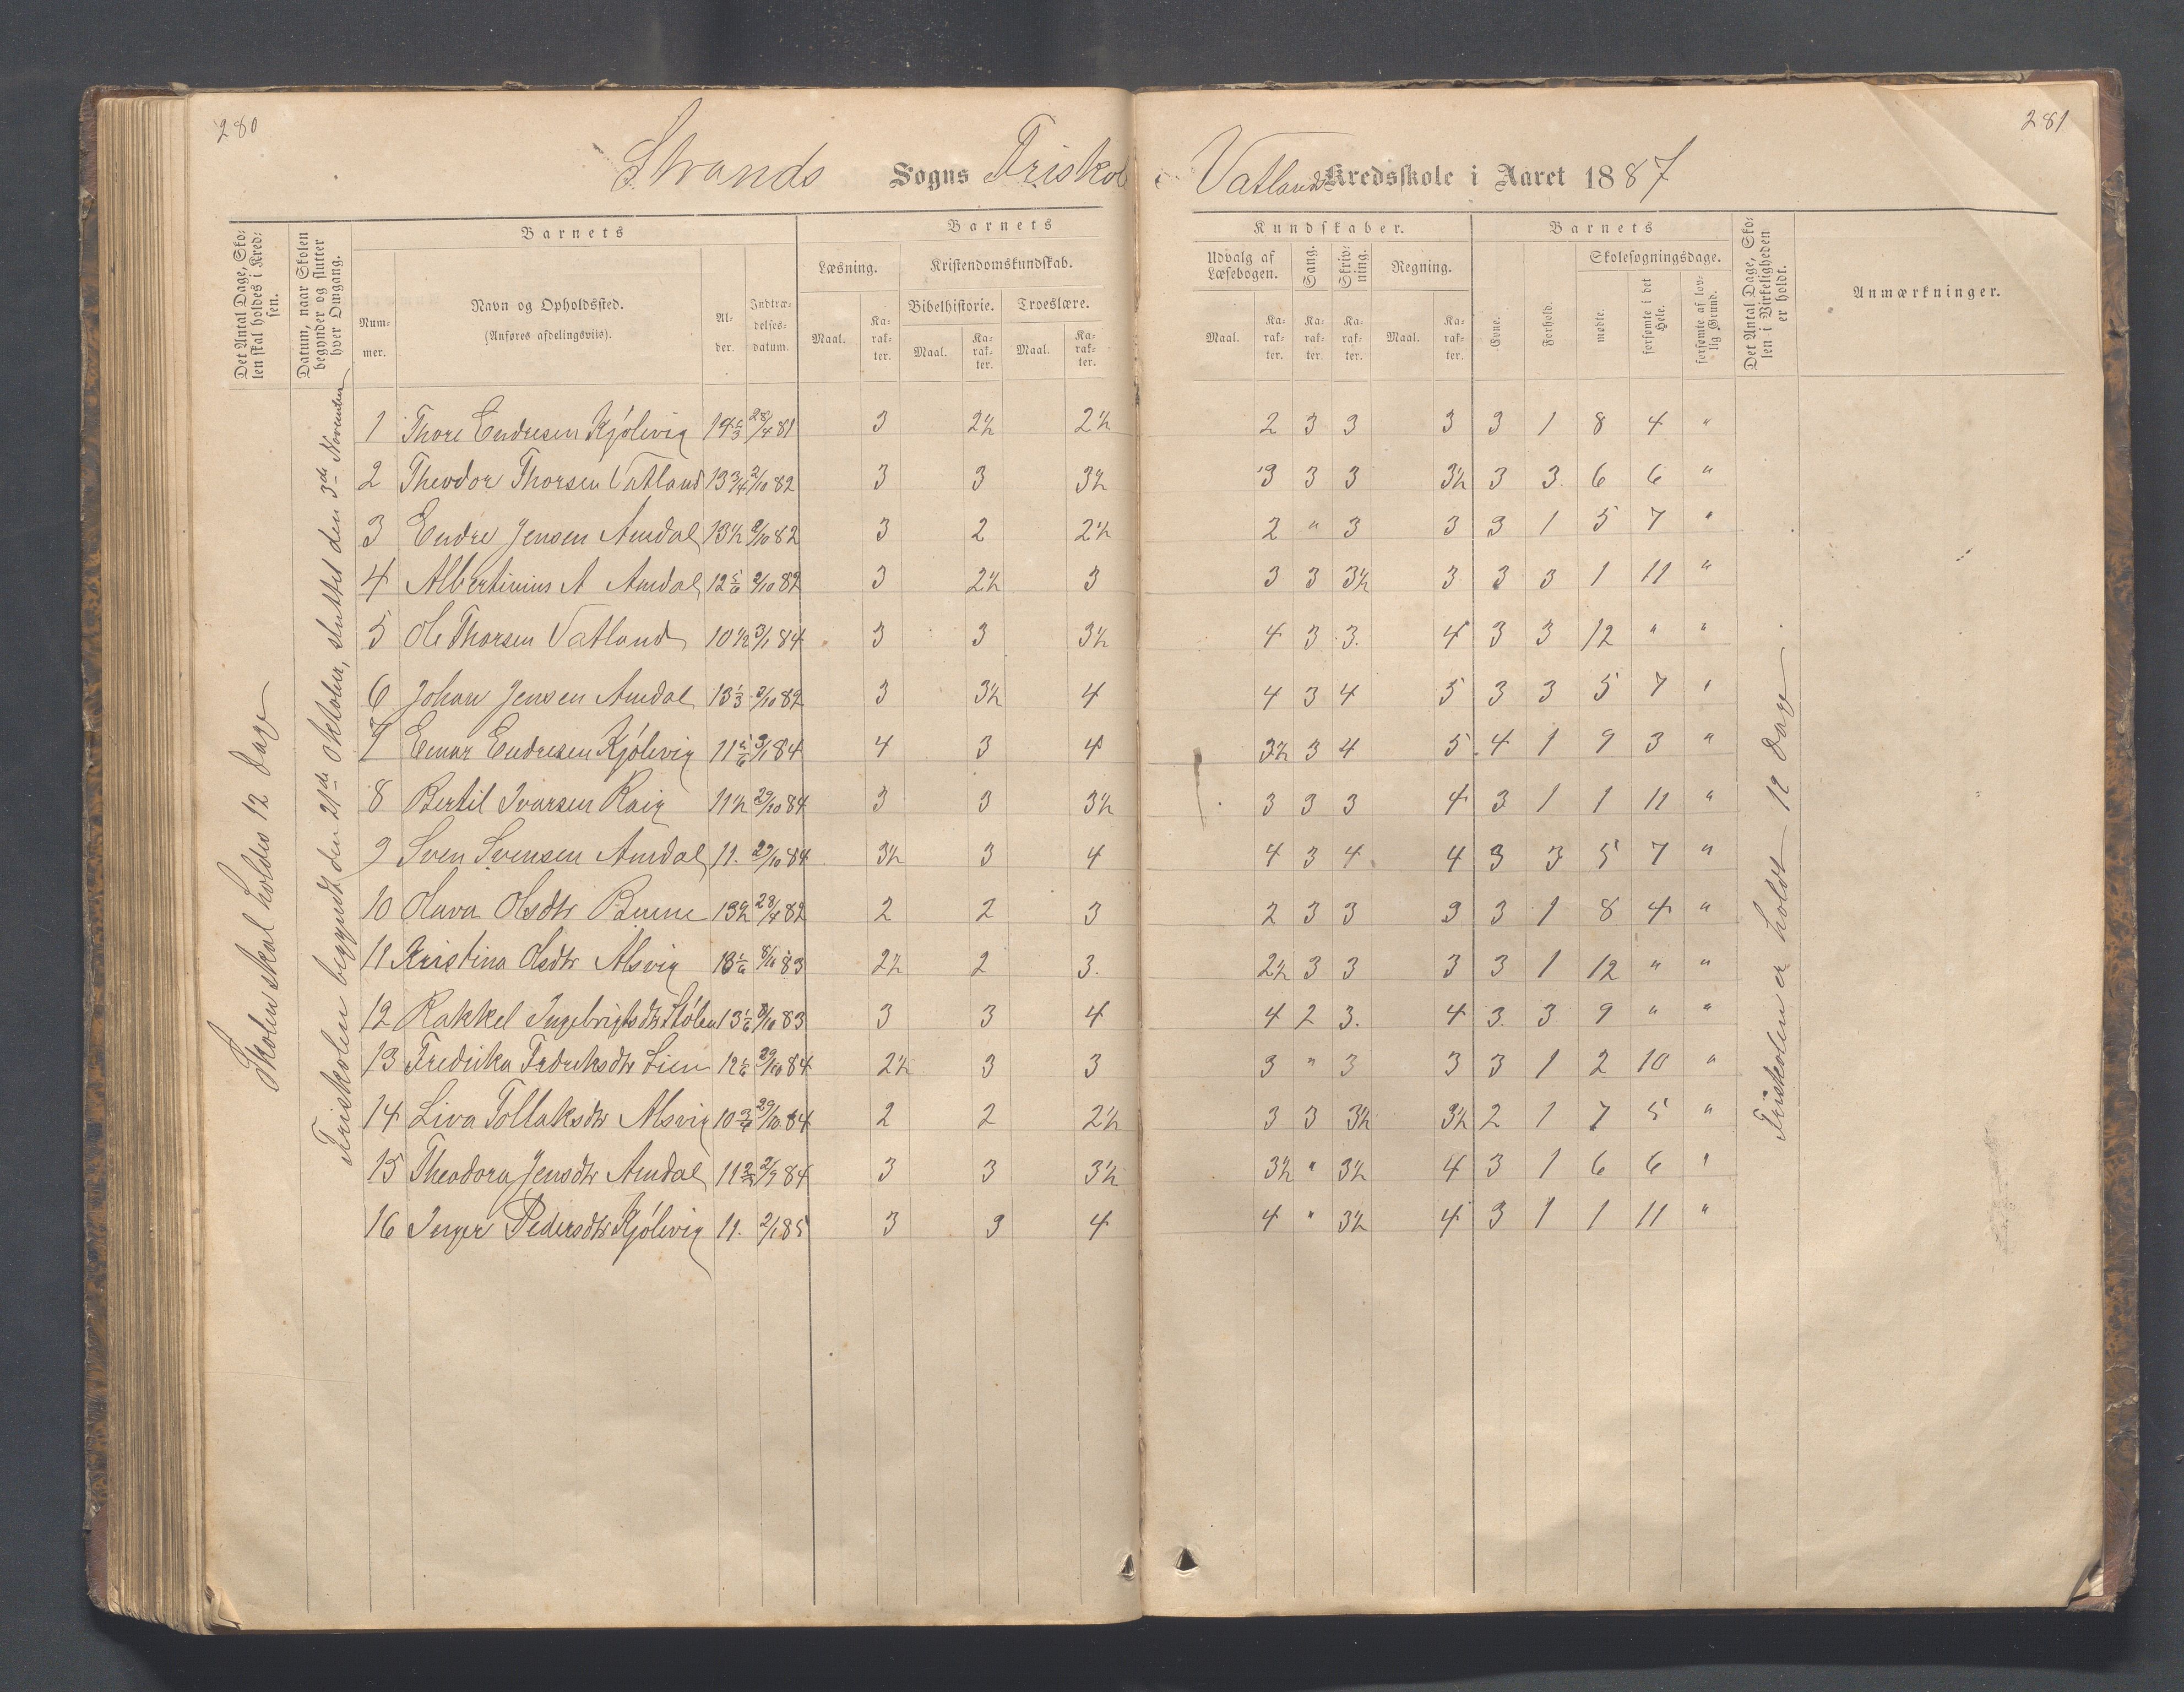 280
281
Strands Sogns Friskole i Vatlands Kredsskole i Aaret 1887
Det Antal Dage, Skolen skal holdes i Kredsen.
Datum, naar Skolen begynder og slutter hver Omgang.
Barnets
Nummer.
Navn og Opholdssted.
(Anføres afdelingsviis).
Alder.
Indtrædelsesdatum.
Barnets
Læsning.
Maal.
Karakter.
Kristendomskundskab.
Bibelhistorie.
Maal.
Karakter.
Troeslære.
Maal.
Karakter.
Kundskaber.
Udvalg af Læsebogen.
Maal.
Karakter.
Sang.
Karakter.
Skrivning.
Karakter.
Regning.
Maal.
Karakter.
Barnets
Evne.
Forhold.
Skolesøgningsdage.
mødte.
forsømte i det Hele.
forsømte af lovlig Grund.
Det Antal Dage, Skolen i Virkeligheden er holdt.
Anmærkninger.
Skolen skal holdes 12 Dage
Friskolen begyndt den 21de Oktober, sluttet den 3de November
1 Thore Endresen Kjølevig 14 1/3 28/4 81 3 2½ 2½ 2 3 3 3 3 1 8 4 "
2 Theodor Thorsen Vatland 13 3/4 2/10 82 3 3 3½ 3 3 3 3½ 3 3 6 6 "
3 Endre Jensen Amdal 13½ 2/10 82 3 2 2½ 2 " 3 3 3 1 5 7 "
4 Albertinius A Amdal 12 5/6 2/10 82 3 2½ 3 3 3 3½ 3 3 3 1 11 "
5 Ole Thorsen Vatland 10½ 3/1 84 3 3 3½ 4 3 3. 4 3 3 12 " "
6 Johan Jensen Amdal 13 1/3 2/10 82 3 3½ 4 4 3 4 5 3 3 5 7 "
7 Einar Endresen Kjølevig 11 5/6 3/1 84 4 3 4 3½ 3 4 5 4 1 9 3 "
8 Bertil Ivarsen Raig 11½ 29/10 84 3 3 3½ 3 3 3 4 3 1 1 11 "
9 Sven Svensen Amdal 11. 29/10 84 3½ 3 4 4 3 4 4 3 3 5 7 "
10 Olava Olsdtr 13½ 28/4 82 2 2 3 2 3 3 3 3 1 8 4 "
11 Kristina Olsdtr Alsvig 13 1/6 8/10 83 2½ 2 3. 2½ 3 3 3 3 1 12 " "
12 Rakkel Ingebrigtsdtr Stølen 13 1/6 8/10 83 3 3 4 4 2 3. 4 3. 3 9 " "
13 Fredrika Fredriksdtr Lien 12 1/6 29/10 84 2½ 3 3 3 " 3 3 3 1 2 10 "
14 Liva Tollaksdtr Alsvig 10 29/10 84 2 2 2½ 3 3 3½ 3½ 2 1 7 5 "
15 Theodora Jensdtr Amdal 11 2/3 2/7 84 3 3 3½ 3½ " 3½ 4 3 1 6 6 "
16 Inger Pedersdtr Kjølevig 11. 2/1 85 3 3 4 4 " 3½ 4 3 1 1 11 "
Friskolen er holdt 12 Dage